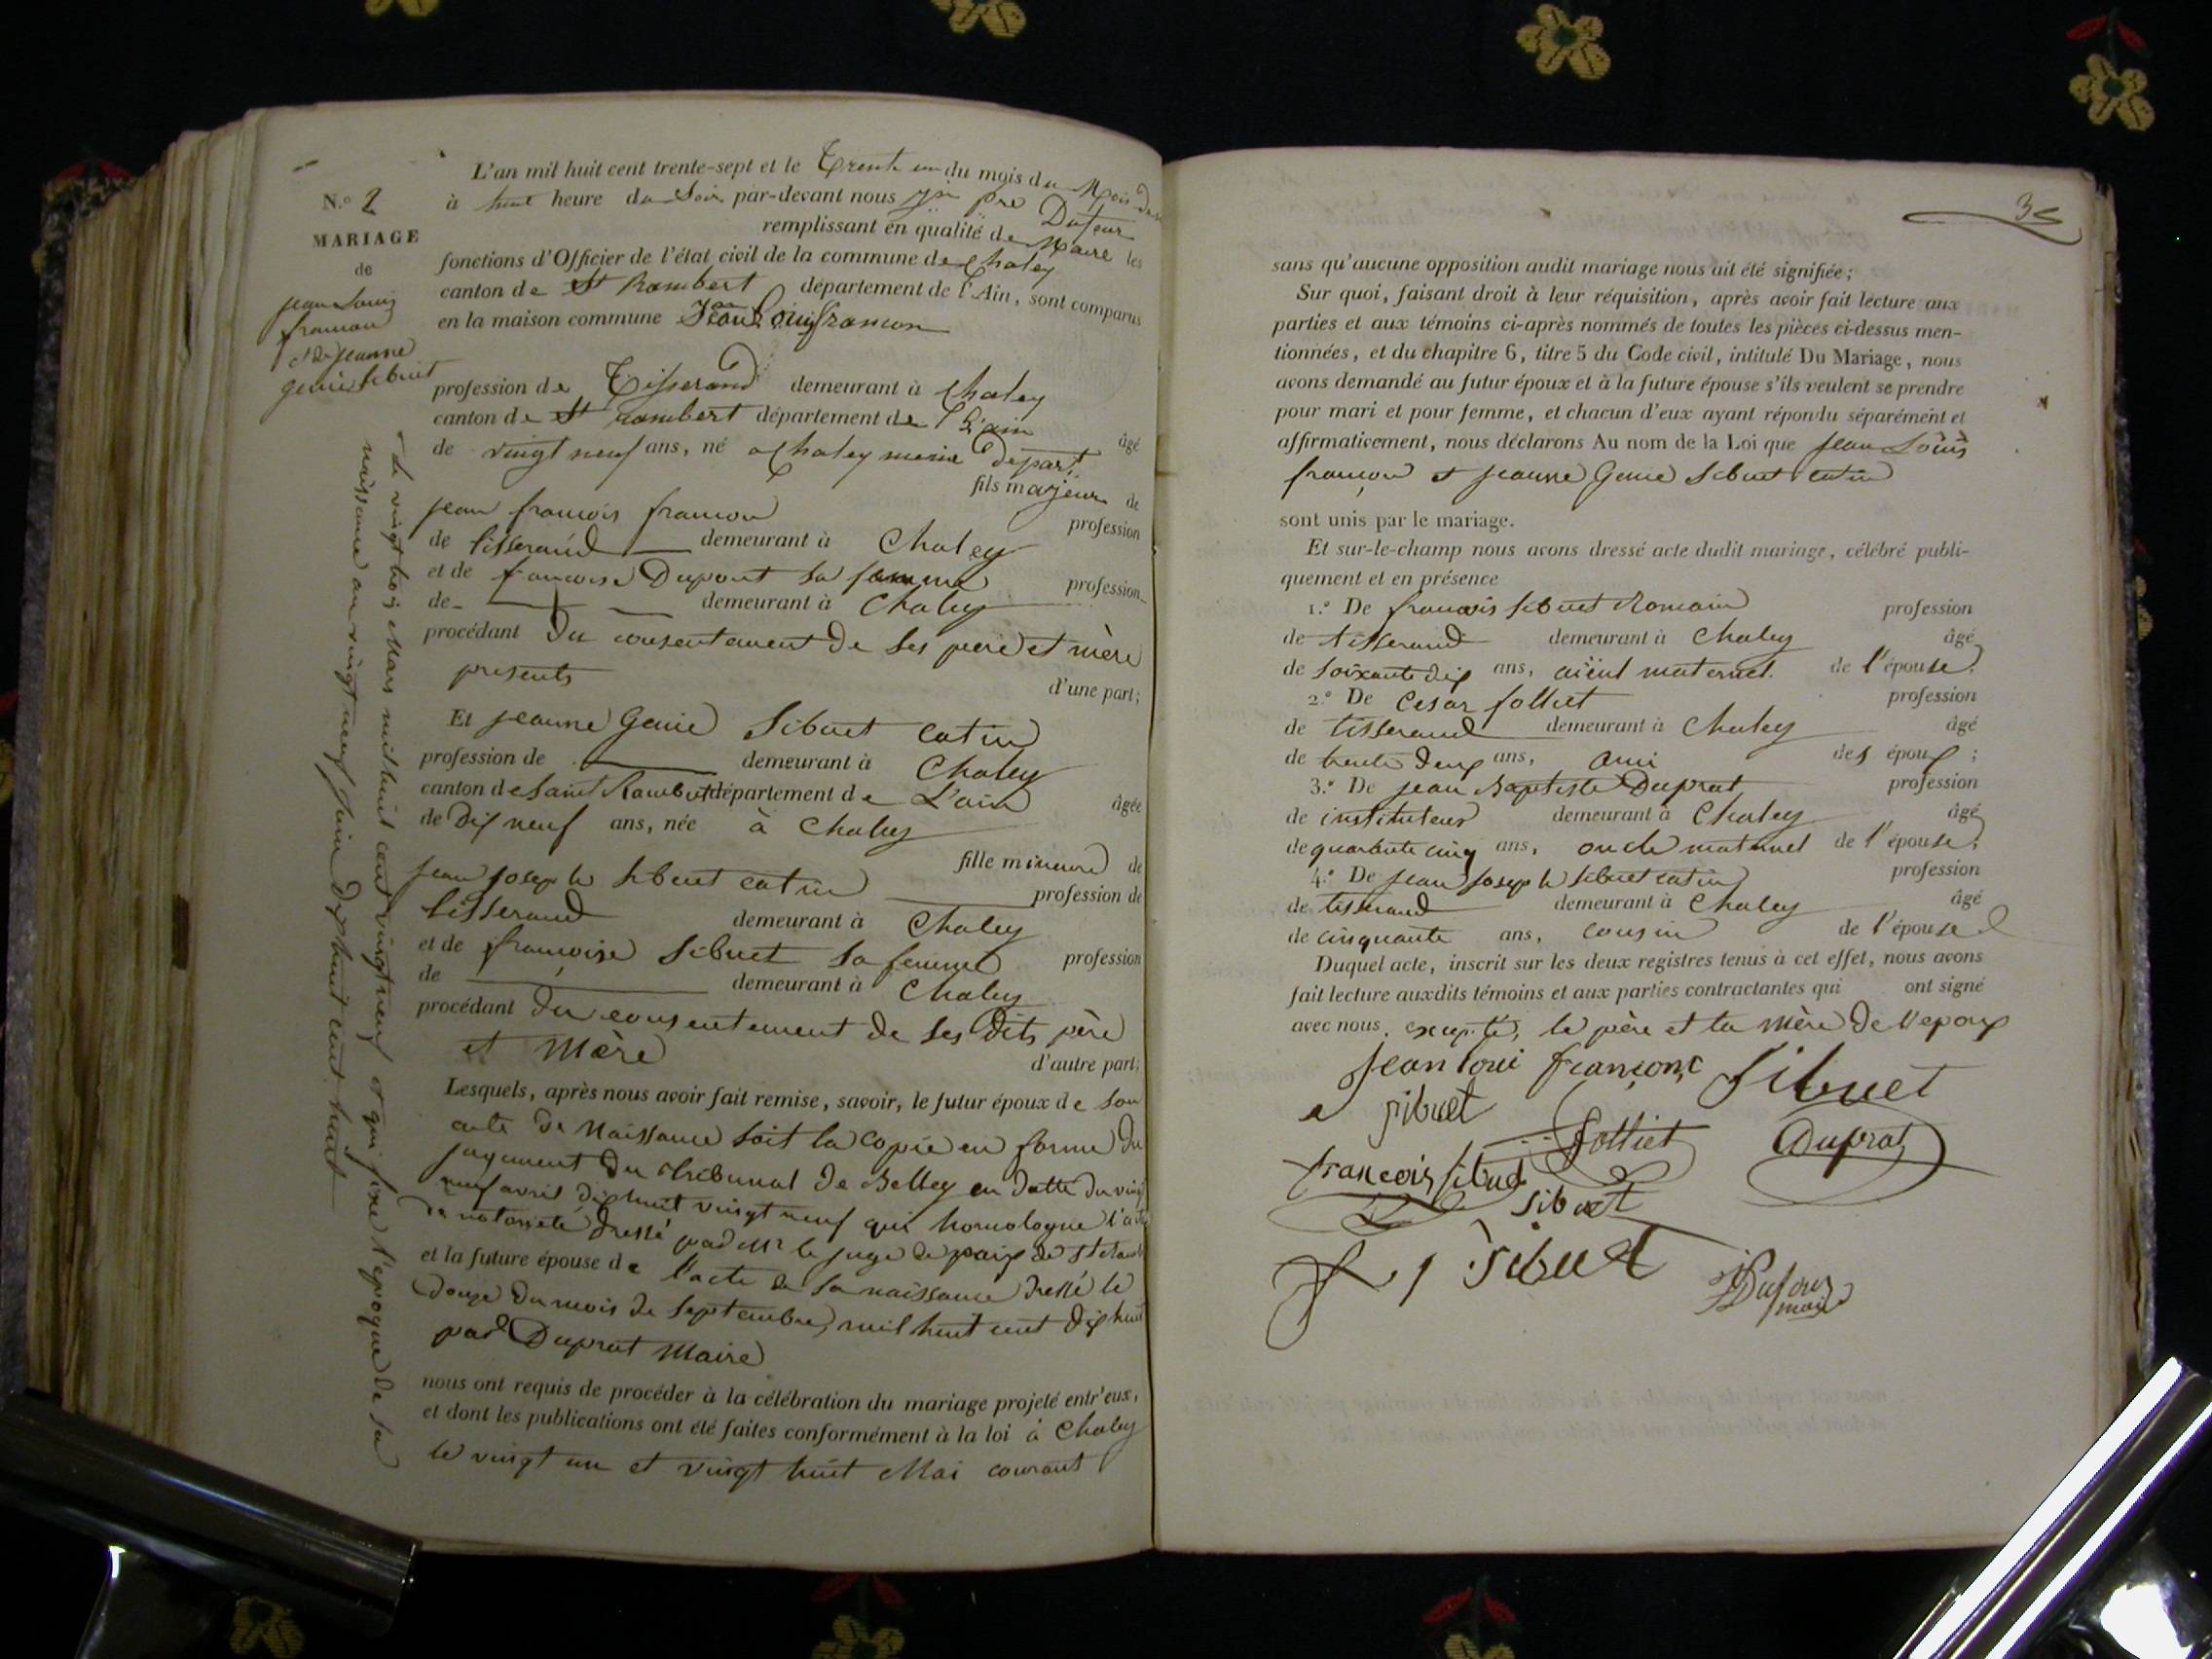 N.º 2
MARIAGE
de
jean Louis
francon
et de jeanne
genie sibuet
L'an mil huit cent trente-sept et le Trente un du mois du Mois de
à huit heure du Soir par-devant nous pre Dufour
remplissant en qualité de Maire les
fonctions d'Officier de l'état civil de la commune de Chaley
canton de St Rambert département de l'Ain, sont comparus
en la maison commune Jean Louis francon
profession de Tisserand demeurant à Chaley
canton de St rambert département de L'ain
âgé
de vingt neuf ans, né a Chaley meme Depart.
fils majeur de
jean francois francon
profession
de tisserand demeurant à Chaley
et de francoise Dupont sa femme profession
de demeurant à Chaley
procédant Du consentement de ses pere et mère
presents
d'une part;
Et jeanne Genie Sibuet catin
profession de demeurant à Chaley
canton de saint Rambert département de L'ain
âgée
de dix neuf ans, née à Chaley
fille mineure de
jean joseph sibuet catin profession de
tisserand demeurant à Chaley
et de françoise Sibuet sa femme profession
de demeurant à Chaley
procédant du consentement de ses dits père
et Mère
d'autre part;
Lesquels, après nous avoir fait remise, savoir, le futur époux de son
acte de Naissance soit la copie en forme du
jugement du tribunal de Belley en datte du vingt
neuf avril dixhuit vingt neuf qui homologue l'acte
de notorieté dressé par le juge de paix de St
et la future épouse de l'acte de sa naissance dressé le
douze du mois de septembre mil huit cent dix huit
par Duprat Maire
nous ont requis de procéder à la célébration du mariage projeté entr'eux,
et dont les publications ont été faites conformément à la loi à Chaley
le vingt un et vingt huit Mai courant
Le vingt trois Mars mil huit cent vingt neuf et qui fixe l'epoque de sa
naissance au vingt neuf juin dix huit cent huit
35
sans qu'aucune opposition audit mariage nous ait été signifiée;
Sur quoi, faisant droit à leur réquisition, après avoir fait lecture aux
parties et aux témoins ci-après nommés de toutes les pièces ci-dessus men-
tionnées, et du chapitre 6, titre 5 du Code civil, intitulé Du Mariage, nous
avons demandé au futur époux et à la future épouse s'ils veulent se prendre
pour mari et pour femme, et chacun d'eux ayant répondu séparément et
affirmativement, nous déclarons Au nom de la Loi que jean Louis
françon et jeanne Genie Sibuet catin
sont unis par le mariage.
Et sur-le-champ nous avons dressé acte dudit mariage, célébré publi-
quement et en présence
1.º De francois sibuet Romain profession
de tisserand demeurant à Chaley âgé
de soixante dix ans, aïeul maternel. de l'épouse;
2.º De Cesar folliet profession
de tisserand demeurant à Chaley âgé
de trente deux ans, ami des époux;
3.º De jean Baptiste Duprat profession
de instituteur demeurant à Chaley âgé
de quarante cinq ans, oncle maternel de l'épouse;
4.º De jean joseph sibuet catin profession
de tisserand demeurant à Chaley âgé
de cinquante ans, cousin de l'épouse
Duquel acte, inscrit sur les deux registres tenus à cet effet, nous avons
fait lecture auxdits témoins et aux parties contractantes qui ont signé
avec nous. excepté, le père et la Mère de l'epoux
jean loui françont Sibuet
sibuet
folliet Duprat
francois sibuet
Sibuet
J j Sibuet
Dufour
maire